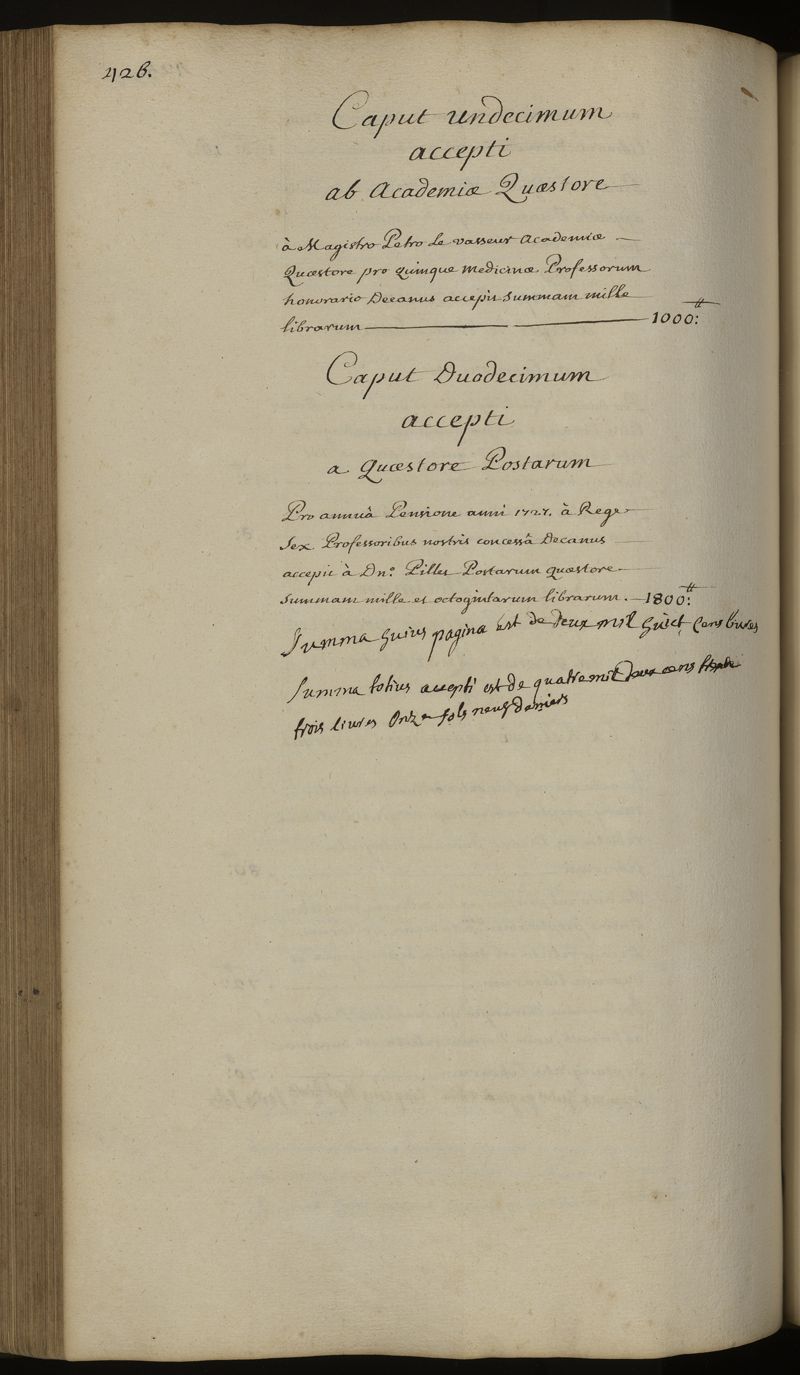 426.
Caput undecimum
accepti
ab Academiæ Quæstore
à Magistro Petro Le vasseur Academiæ
Quæstore pro quinque medicinæ Professorum
honorario Decanus accepit summam mille
librarum 1000:ᵗᵗ
Caput Duodecimum
accepti
a Quæstore Postarum
Pro annuâ Pensione anni 1727. à Rege
sex Professoribus nostris concessâ Decanus
accepit à Dno. Pilles Postarum quæstore
summam mille et octogintarum librarum. 1800:ᵗᵗ
Summa huius pagina est de deux mil huict cens livres
Summa totius accepti est de quatre mil deux cens trente
trois livres Onze sols neuf deniers